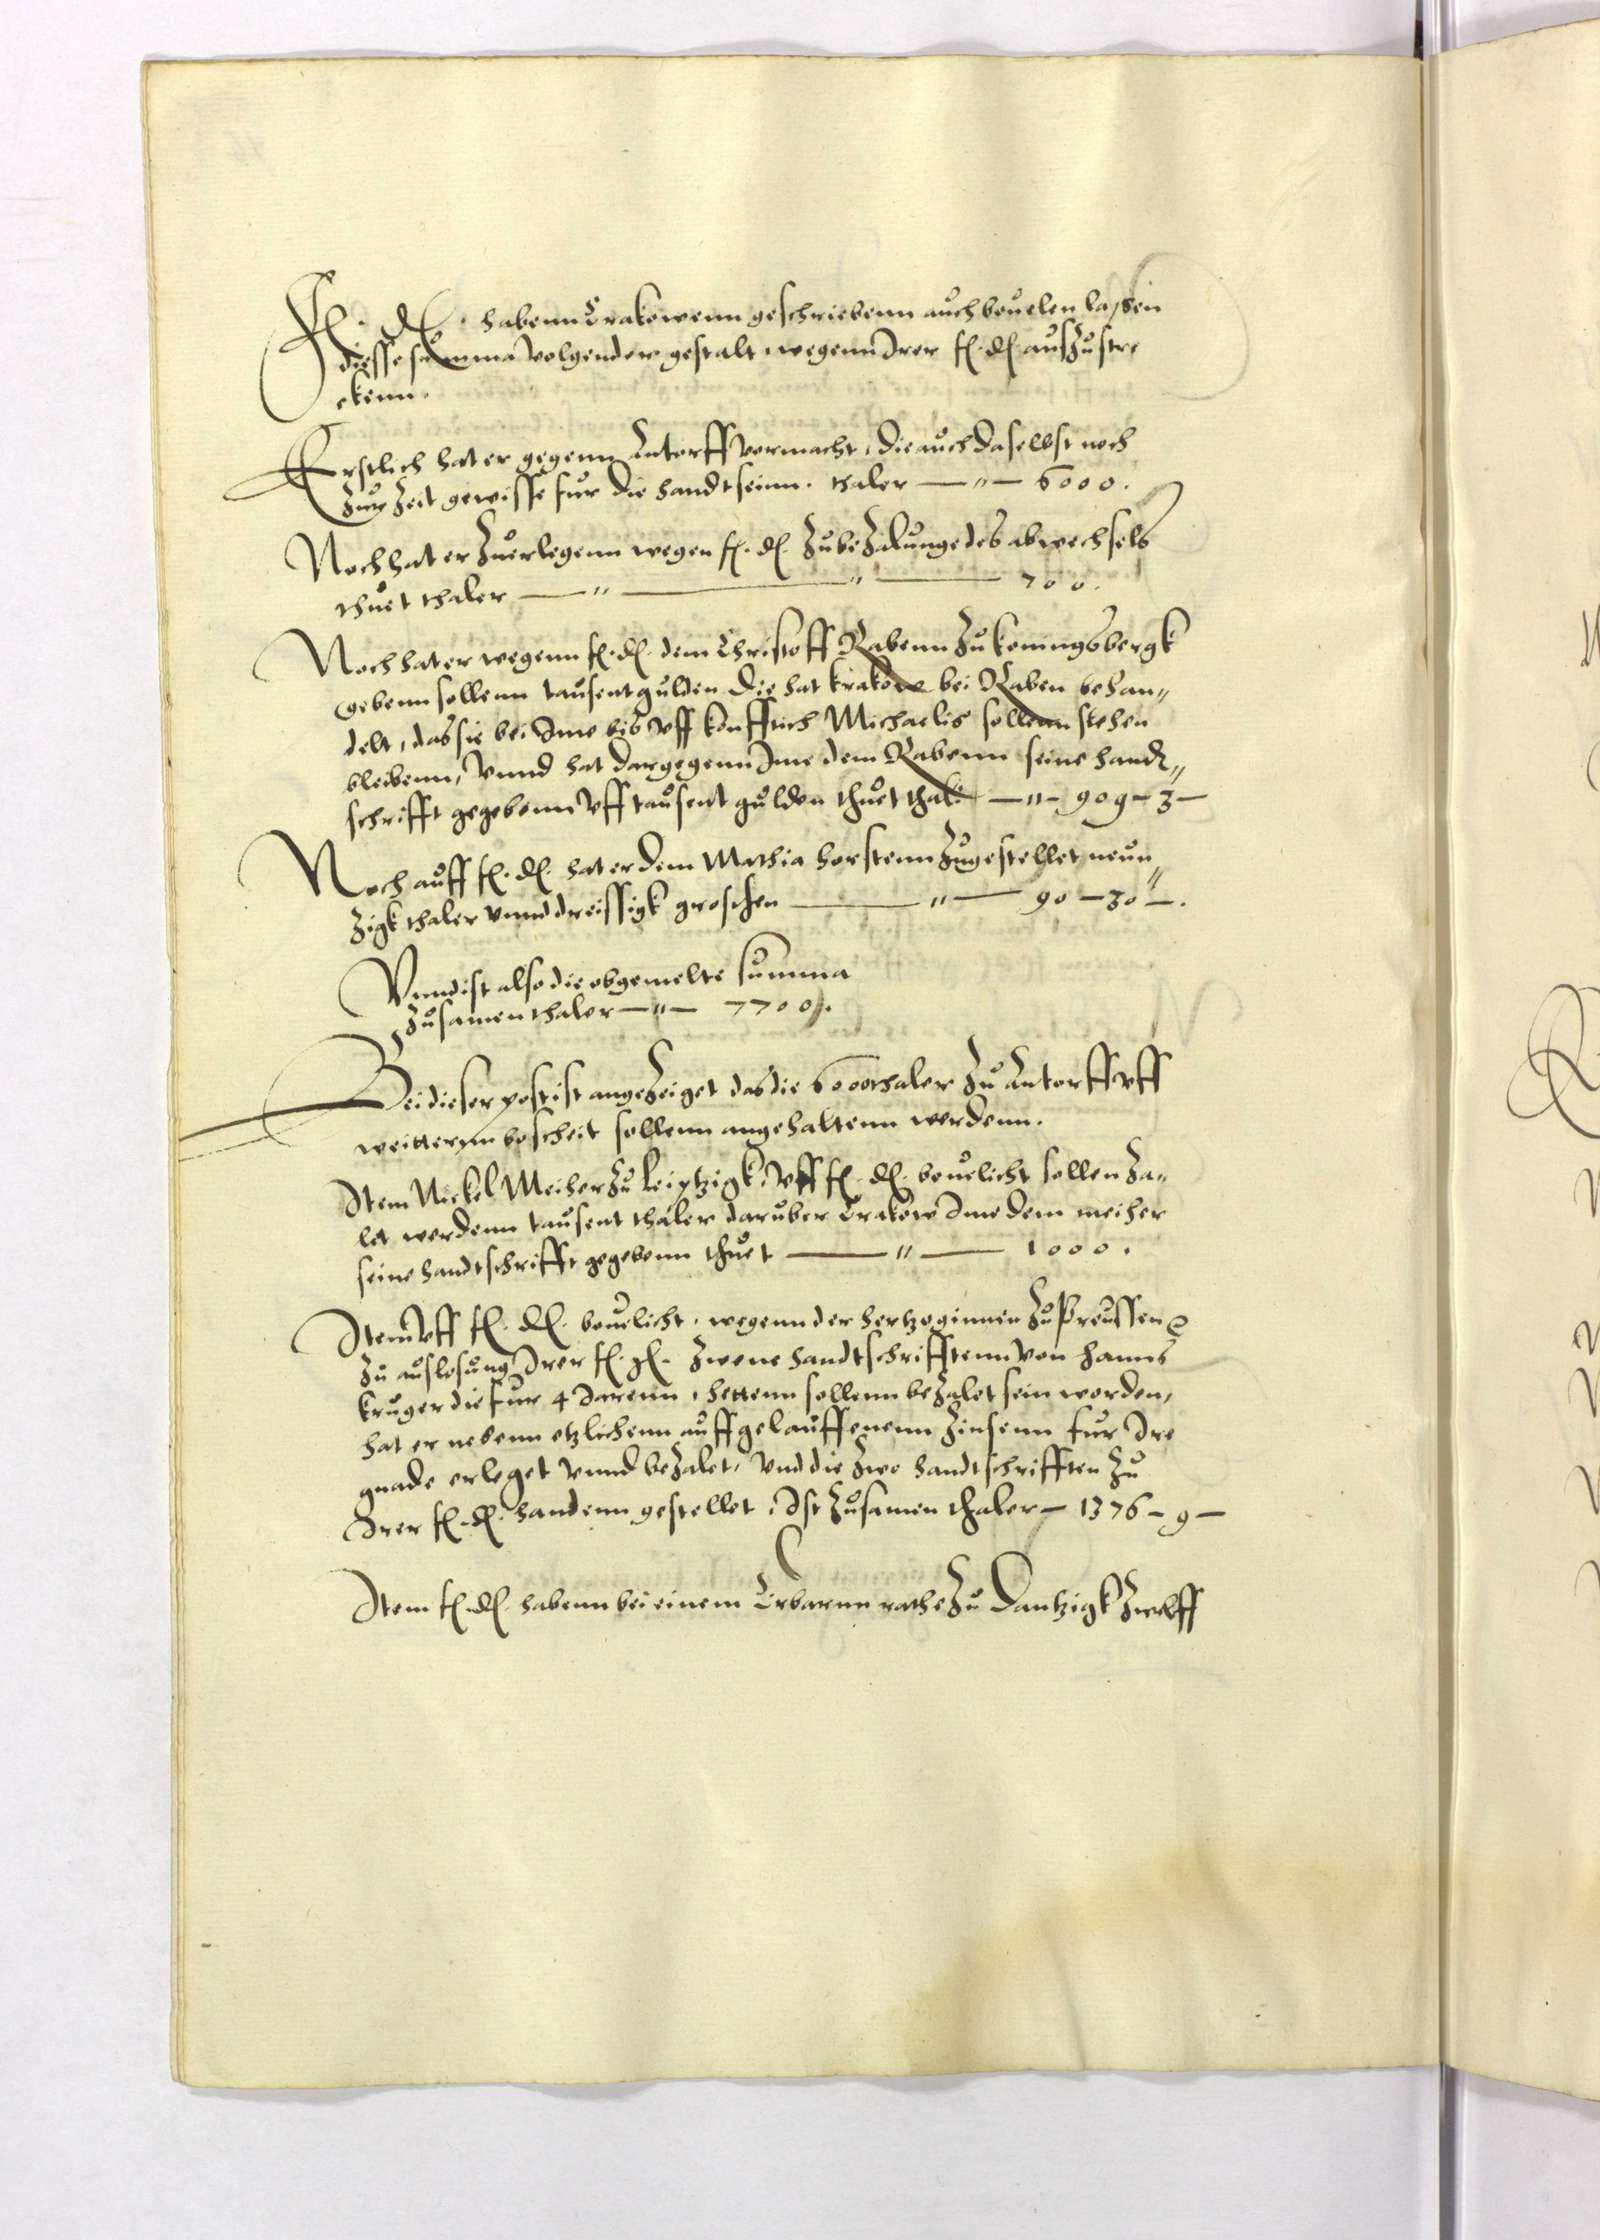 F. D. habenn Crakowenn geschriebenn auch beuelen laßen
diesse summa volgender gestalt, wegenn Irer f. d. auszustre
ckenn.
Erstlich hat er gegenn Antorff vermacht, die auch daselbst noch
zur zeit gewisse fur die handt seinn. thaler — " — 6000.
Noch hat er zuerlegenn wegen f. d. zubezalunge des abwechsels
thuet thaler — " — " — 700.
Noch hat er wegenn f. d. dem Christoff Rabenn zu koningsbergk
gebenn sollenn tausent gulden die hat krakow bei Raben behan"
delt, das sie bei Ime bis vff konfftich Michaelis sollenn stehen
bleibenn, vnnd hat dargegenn Ime dem Rabenn seine handt"
schrifft gegebenn vff tausent gulden thuet thal. — " — 909 — 3 —
Noch auff f. d. hat er dem Mathia horstenn zugestellet neun"
zigk thaler vnnd dreissigk groschen — " — 90 — 30 —.
Vnnd ist also die obgemelte summa
zusamen thaler — " — 7700.
Bei dieser post ist angezeiget das die 6000 thaler zu Antorff vff
weitterenn bescheit sollenn angehaltenn werdenn.
Item Nickel Meiher zu leiptzigk, vff f. d. beuelicht sollen za"
let werdenn tausent thaler daruber Crakow Ime dem meiher
seine handtschrifft gegebenn thuet — " — 1000.
Item vff f. d. beuelicht, wegenn der hertzoginnen zu Preussen
zu auslosung Irer f. g. zwene handtschrifftenn von hanns
kruger die fur 4 Jarenn, hettenn sollenn bezalet sein worden,
hat er nebenn etzlichenn auffgelauffenenn zinsenn fur Ire
gnade erleget vnnd bezalet, vnd die zwo handtschrifften zu
Irer f. d. handenn gestellet, Ist zusamen thaler — 1376 — 9 —
Item f. d. habenn bei einem Erbarnn rathe zu Dantzigk zwelff